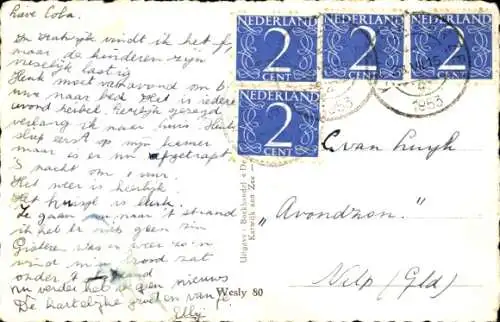 Lieve Coba.
In Katwijk vindt ik het fijn,
maar de kinderen zijn
vreselijk lastig
Henk moet vanavond om
naar bed. Het is iedere
avond heibel. Eerlijk gezegd
verlang ik naar huis.
sliep eerst op mijn kamer
maar is er nu afgetrapt
's nacht om 1 uur.
Het weer is heerlijk.
Het huisje is leuk.
Ze gaan nu naar 't strand
ik heb er niets geen zin
Gisteren was er weer zo'n
wind
onder 't zand
nu verder heb ik geen nieuws
De hartelijke groeten van
Elly
NEDERLAND
2
CENT
NEDERLAND
2
CENT
NEDERLAND
2
CENT
NEDERLAND
2
CENT
1953
1953
C. van Luijk
„Avondzon."
Velp (Gld)
Uitgave: Boekhandel
Katwijk aan Zee
Wesly 80